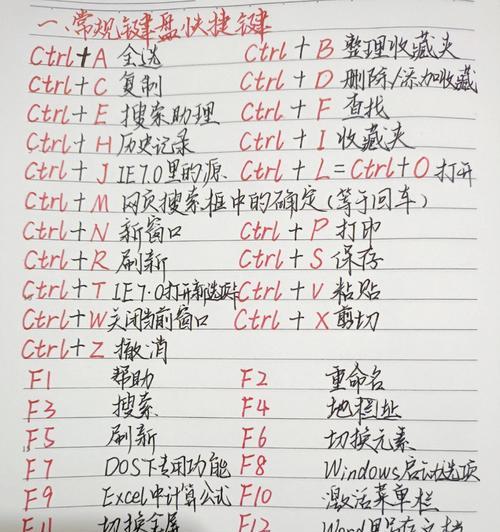 一、常规键盘快捷键
Ctrl+A 全选 Ctrl+B 整理收藏夹
Ctrl+C 复制 Ctrl+D 删除/添加收藏
Ctrl+E 搜索助理 Ctrl+F 查找
Ctrl+H 历史记录 Ctrl+I 收藏夹
Ctrl+J IE7.0里的源 Ctrl+L=Ctrl+O 打开
Ctrl+M 网页搜索框中的确定(等于回车)
Ctrl+N 新窗口 Ctrl+P 打印
Ctrl+R 刷新 Ctrl+S 保存
Ctrl+T IE7.0打开新选项卡 Ctrl+V 粘贴
Ctrl+W 关闭当前窗口 Ctrl+X 剪切
Ctrl+Z 撤消
F1 帮助 F2 重命名
F3 搜索 F4 地址
F5 刷新 F6 切换元素
F7 DOS下专用功能 F8 Windows启动选项
F9 Excel中计算公式 F10 激活菜单栏
F11 切换全屏 F12 Word里另存文档